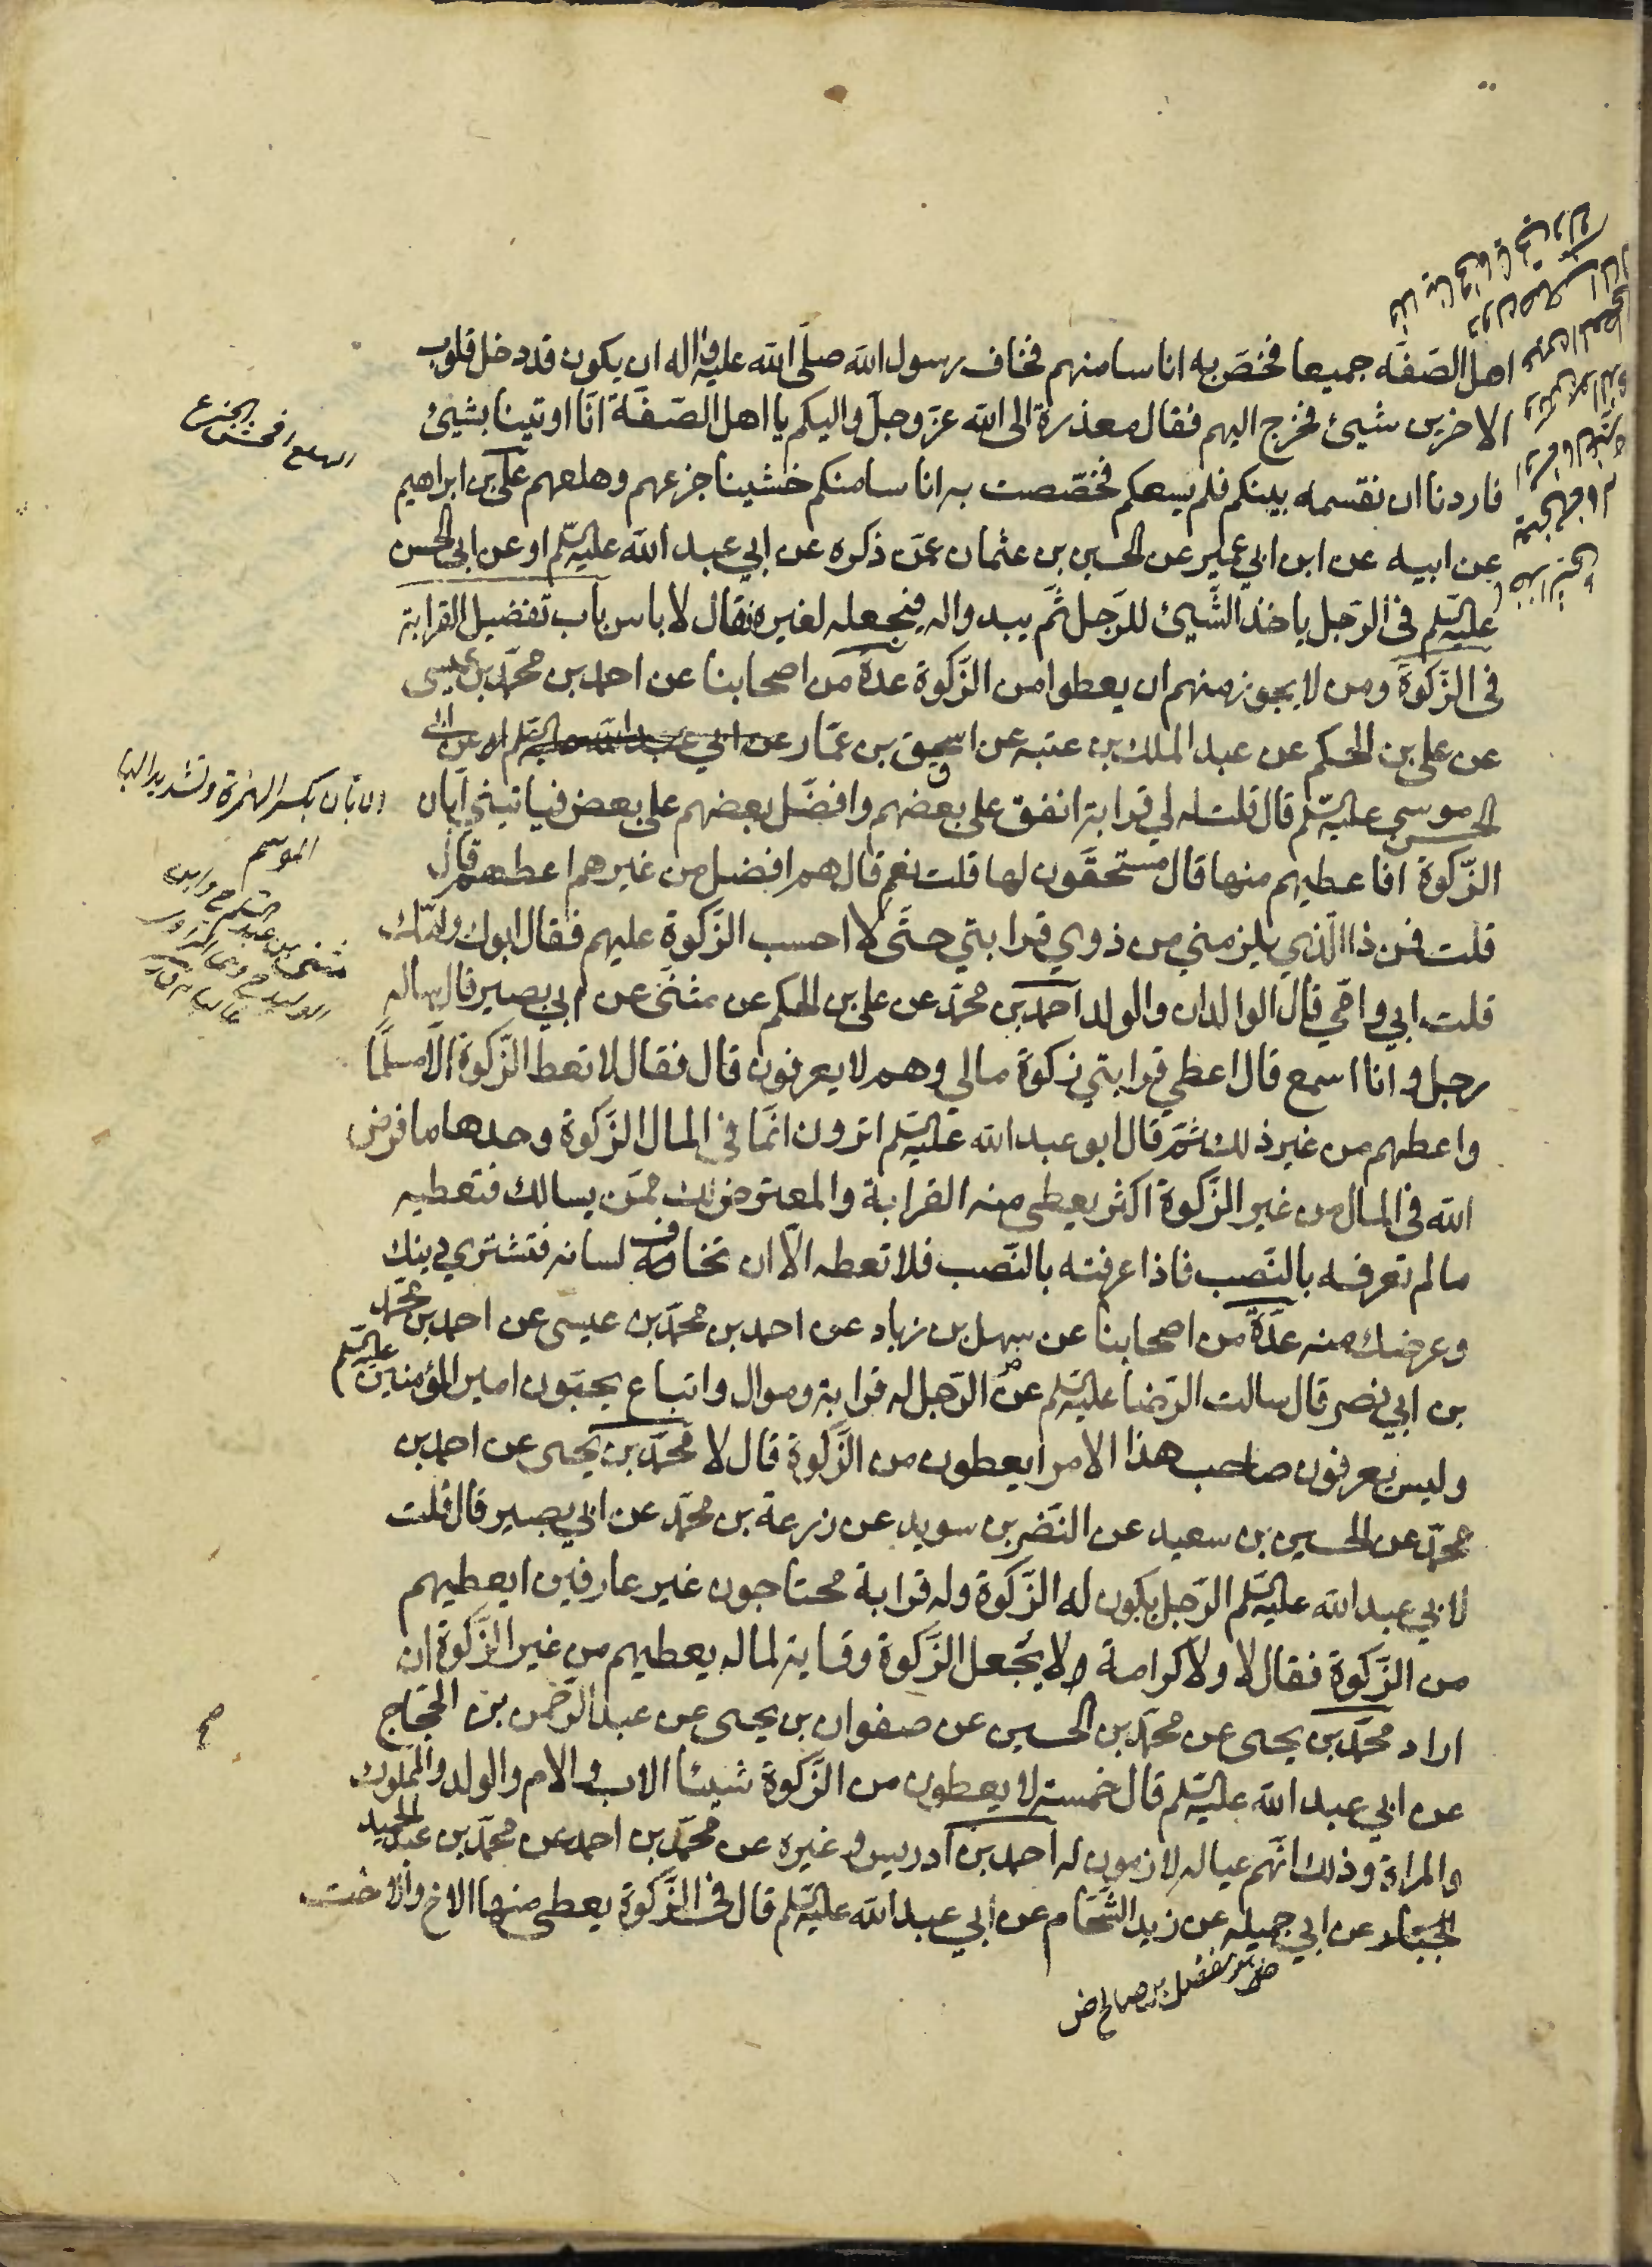 اهل الصّفّه جميعا فخصّ به اناسا منهم فخاف رسول الله صلّى الله عليه واله ان يكون قد دخل قلوب
الاخرين شيئ فخرج اليهم فقال معذرة الى الله عزّ وجلّ واليكم يا اهل الصّفّة انّا اوتينا بشيئ
فاردنا ان نقسمه بينكم فلم يسعكم فخصّصت به اناسا منكم خشينا جزعهم وهلعهم علىّ بن ابراهيم
عن ابيه عن ابن ابي عمير عن الحسين بن عثمان عمّن ذكره عن ابي عبد الله عليه السّلم او عن ابى الحسن
عليه السّلم فى الرّجل ياخذ الشّيئ للرّجل ثمّ يبدو اله فيجعله لغيره فقال لا باس باب تفضيل القرابة
فى الزّكوة ومن لا يجوز منهم ان يعطوا من الزّكوة عدّة من اصحابنا عن احمد بن محمّد بن عيسى
عن على بن الحكم عن عبد الملك بن عتبه عن اسحق بن عمّار عن ابي عبد الله عليه السّلم او عن ابى
الحسن موسى عليه السّلم قال قلت له لي قرابة انفق على بعضهم وافضّل بعضهم على بعض فياتيني ابّان
الزّكوة افاعطيهم منها قال مستحقّون لها قلت نعم قال هم افضل من غيرهم اعطهم قال
قلت فمن ذا الّذي يلزمني من ذوي قرابتي حتّى لا احسب الزّكوة عليهم فقال ابوك وامّك
قلت ابي وامّي قال الوالدان والولد احمد بن محمّد عن على بن الحكم عن مثنّى عن ابي بصير قال ساله
رجل وانا اسمع قال اعطي قرابتي زكوة مالي وهم لا يعرفون قال فقال لا تعط الزّكوة الّا مسلما
واعطهم من غير ذلك ثمّ قال ابو عبد الله عليه السّلم اترون انّما في المال الزّكوة وحدها ما فرض
الله فى المال من غير الزّكوة اكثر يعطى منه القرابة والمعترض لك ممّن يسالك فتعطيه
ما لم تعرفه بالنّصب فاذا عرفته بالنّصب فلا تعطه الّا ان تخاف لسانه فتشتري دينك
وعرضك منه عدّة من اصحابنا عن سهل بن زياد عن احمد بن محمّد بن عيسى عن احمد بن محمّد
بن ابي نصر قال سالت الرّضا عليه السّلم عن الرّجل له قرابة وموال واتباع يحبّون امير المؤمنين عليه السّلم
وليس يعرفون صاحب هذا الامر ايعطون من الزّكوة قال لا محمّد بن يحيى عن احمد بن
محمّد عن الحسين بن سعيد عن النّضر بن سويد عن زرعة بن محمّد عن ابي بصير قال قلت
لابي عبد الله عليه السّلم الرّجل يكون له الزّكوة وله قرابة محتاجون غير عارفين ايعطيهم
من الزّكوة فقال لا ولا كرامة ولا يجعل الزّكوة وقاية لماله يعطيهم من غير الزّكوة ان
اراد محمّد بن يحيى عن محمّد بن الحسين عن صفوان بن يحيى عن عبد الرّحمن بن الحجّاج
عن ابي عبد الله عليه السّلم قال خمسة لا يعطون من الزّكوة شيئا الاب والام والولد والمملوك
والمراة وذلك انّهم عياله لازمون له احمد بن ادريس وغيره عن محمّد بن احمد عن محمّد بن عبد الحميد
عن ابي جميله عن زيد الشّحّام عن ابي عبد الله عليه السّلم قال فى الزّكوة يعطى منها الاخ والاخت
مفضل بن صالح ض
الهلع افحش الجزع
الابان بكسر الهمزة وتشديد البا
الموسم